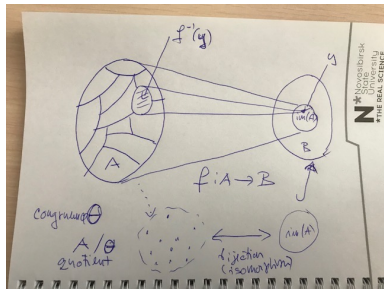 f⁻¹(y)
y
im(A)
B
A
f: A → B
congruence θ
A/θ
quotient
bijection
(isomorphism)
im(A)
N*
Novosibirsk
State
University
*THE REAL SCIENCE